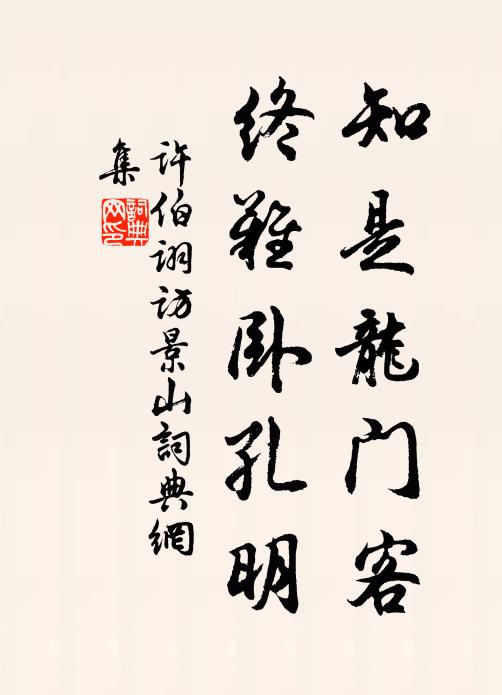 知是龍门客
终難卧孔明
许伯诩访景山詞典網
集
詞典
网印